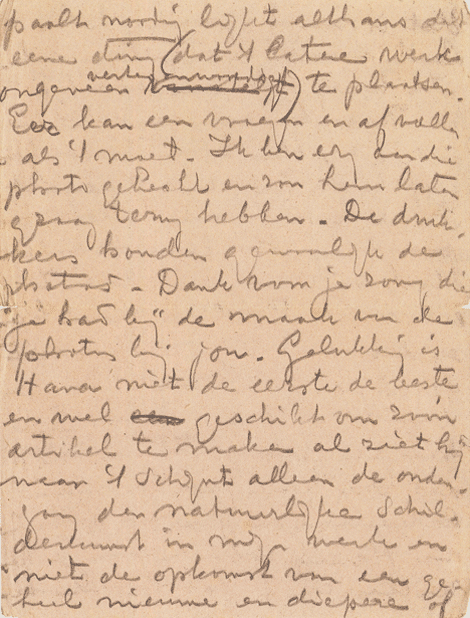 paalt noodig lijkt althans dat
eene ding (dat 't latere werk
ongeveer te plaatsen.
Er kan een vragen en afvallen
als 't moet. Ik ben erg aan die
photo gehecht en zou hem later
graag terug hebben. De druk-
kers houden gewoonlijk de
photos. Dank voor je zorg die
je had bij de maak van de
photos bij jou. Gelukkig is
Hana niet de eerste de beste
en wel een geschikt om zoo'n
artikel te maken al ziet hij
naar 't schijnt alleen de onder-
gang der natuurlijke schil-
derkunst in mijn werk en
niet de opkomst van een ge-
heel nieuwe en diepere of